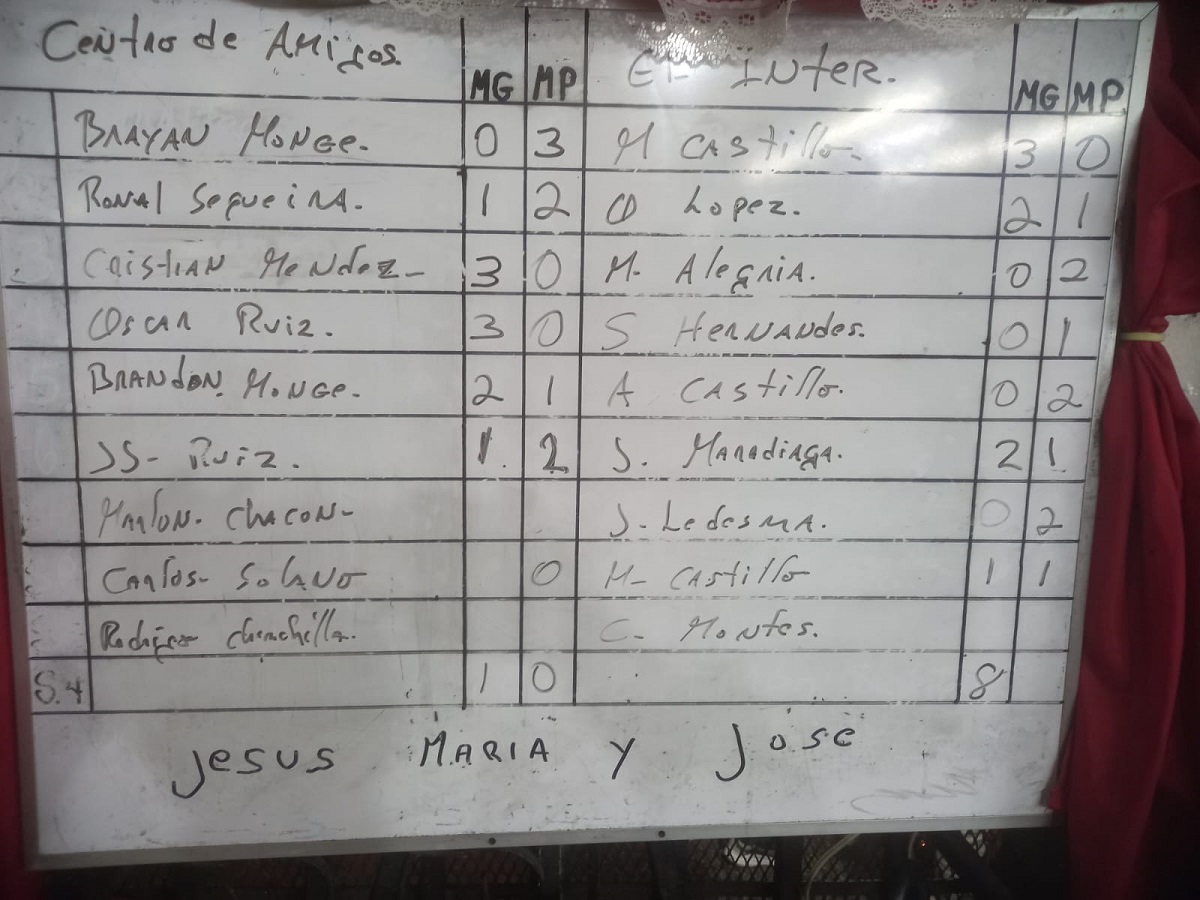 Centro de Amigos. MG MP El Inter. MG MP
Brayan Monge. 0 3 M Castillo. 3 0
Ronal Segueira. 1 2 O Lopez. 2 1
Cristian Mendez 3 0 M. Alegria. 0 2
Oscar Ruiz. 3 0 S Hernandes. 0 1
Brandon. Monge. 2 1 A Castillo. 0 2
JS- Ruiz. 1. 2 J. Maradiaga. 2 1
Marlon. Chacon- J- Ledesma. 0 2
Carlos- Solano 0 M- Castillo 1 1
Rodrigo chinchilla. C- Montes.
S.4 1 0 8
Jesus Maria y Jose